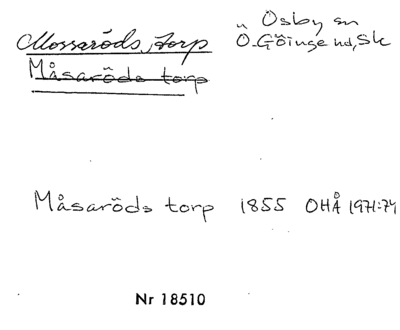 Mossaröds torp Ösby sn
Ö. Göinge hd, Sk
Måsaröds torp
Måsaröds torp 1855 OHÅ 1971:74
Nr 18510